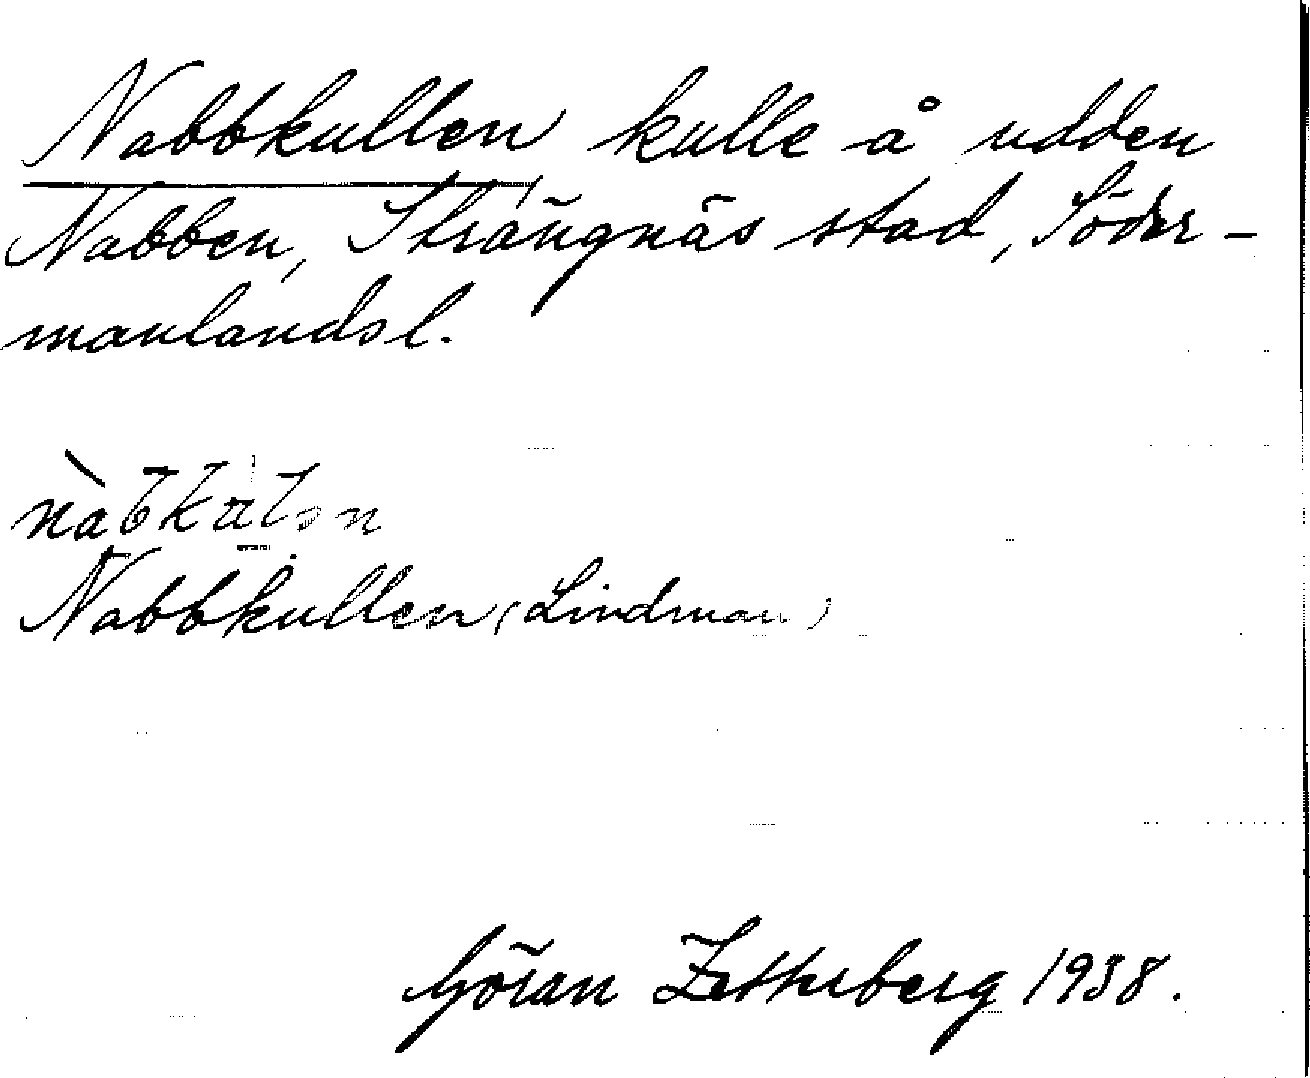 Nabbkullen kulle å udden
Nabben, Strängnäs stad, Söder-
manlandsl.
Nabbkullen (Lindman)
Göran Zetterberg 1938.